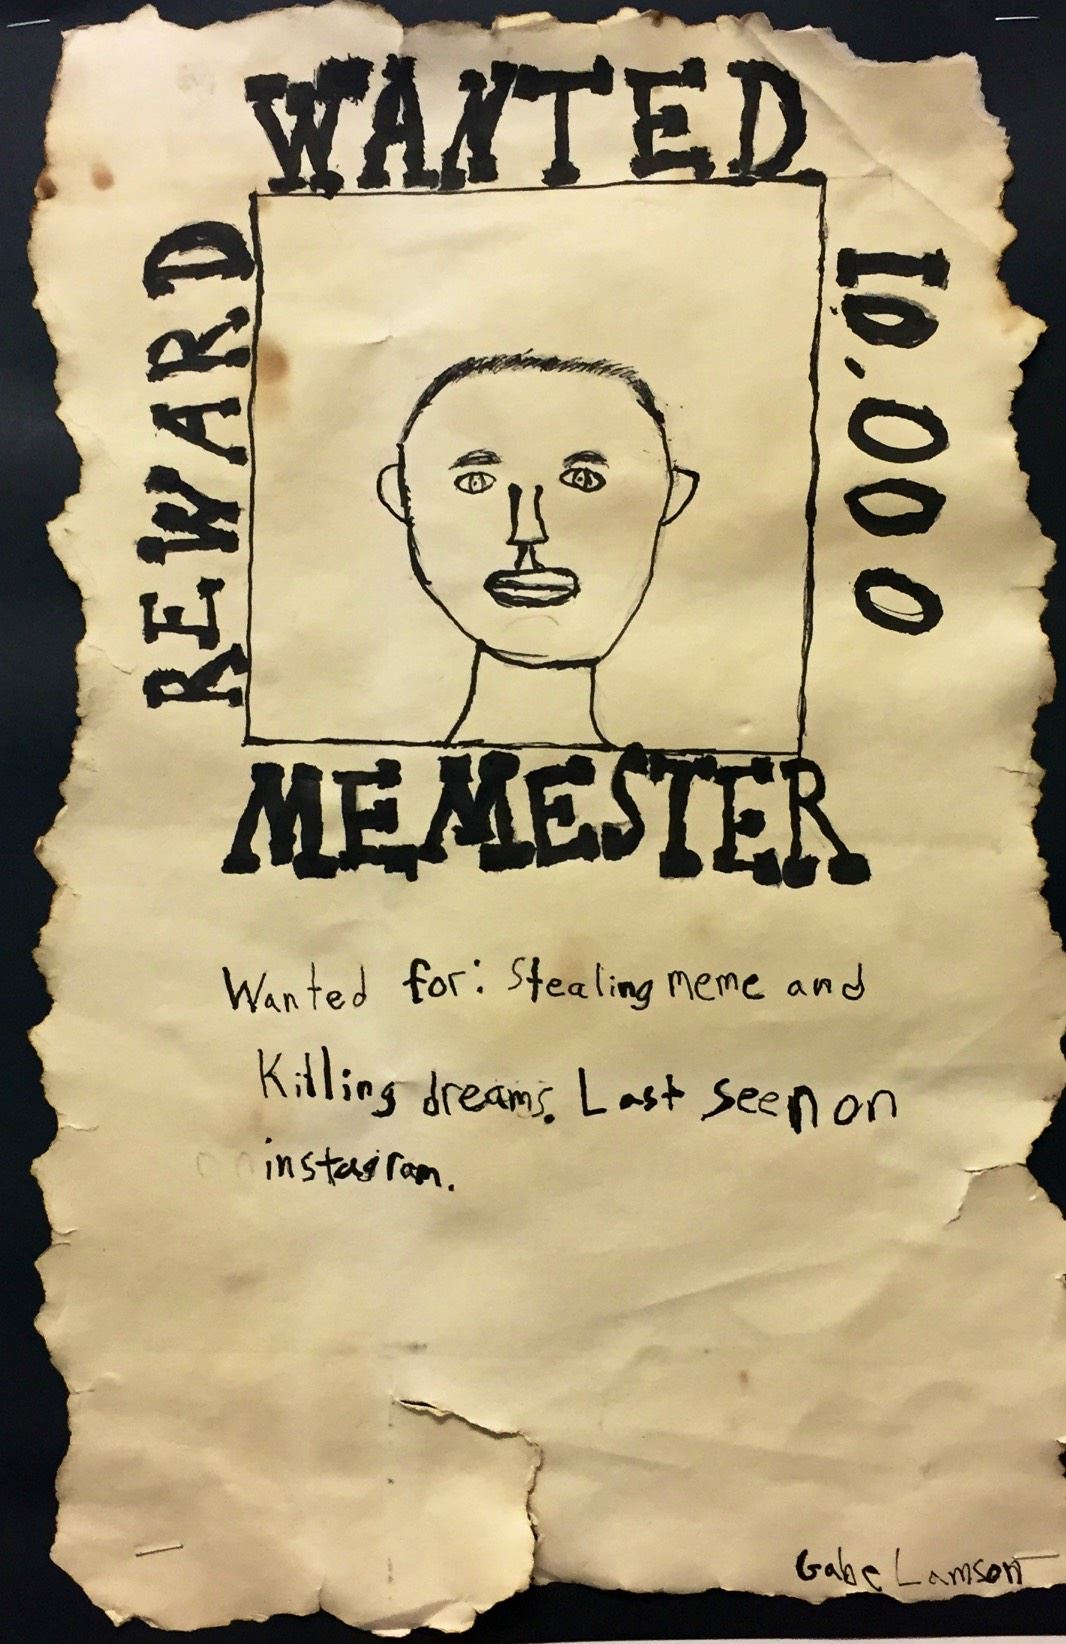 WANTED
REWARD
10.000
MEMESTER
Wanted for: Stealing meme and
Killing dreams. Last seen on
instagram.
Gabe Lamson